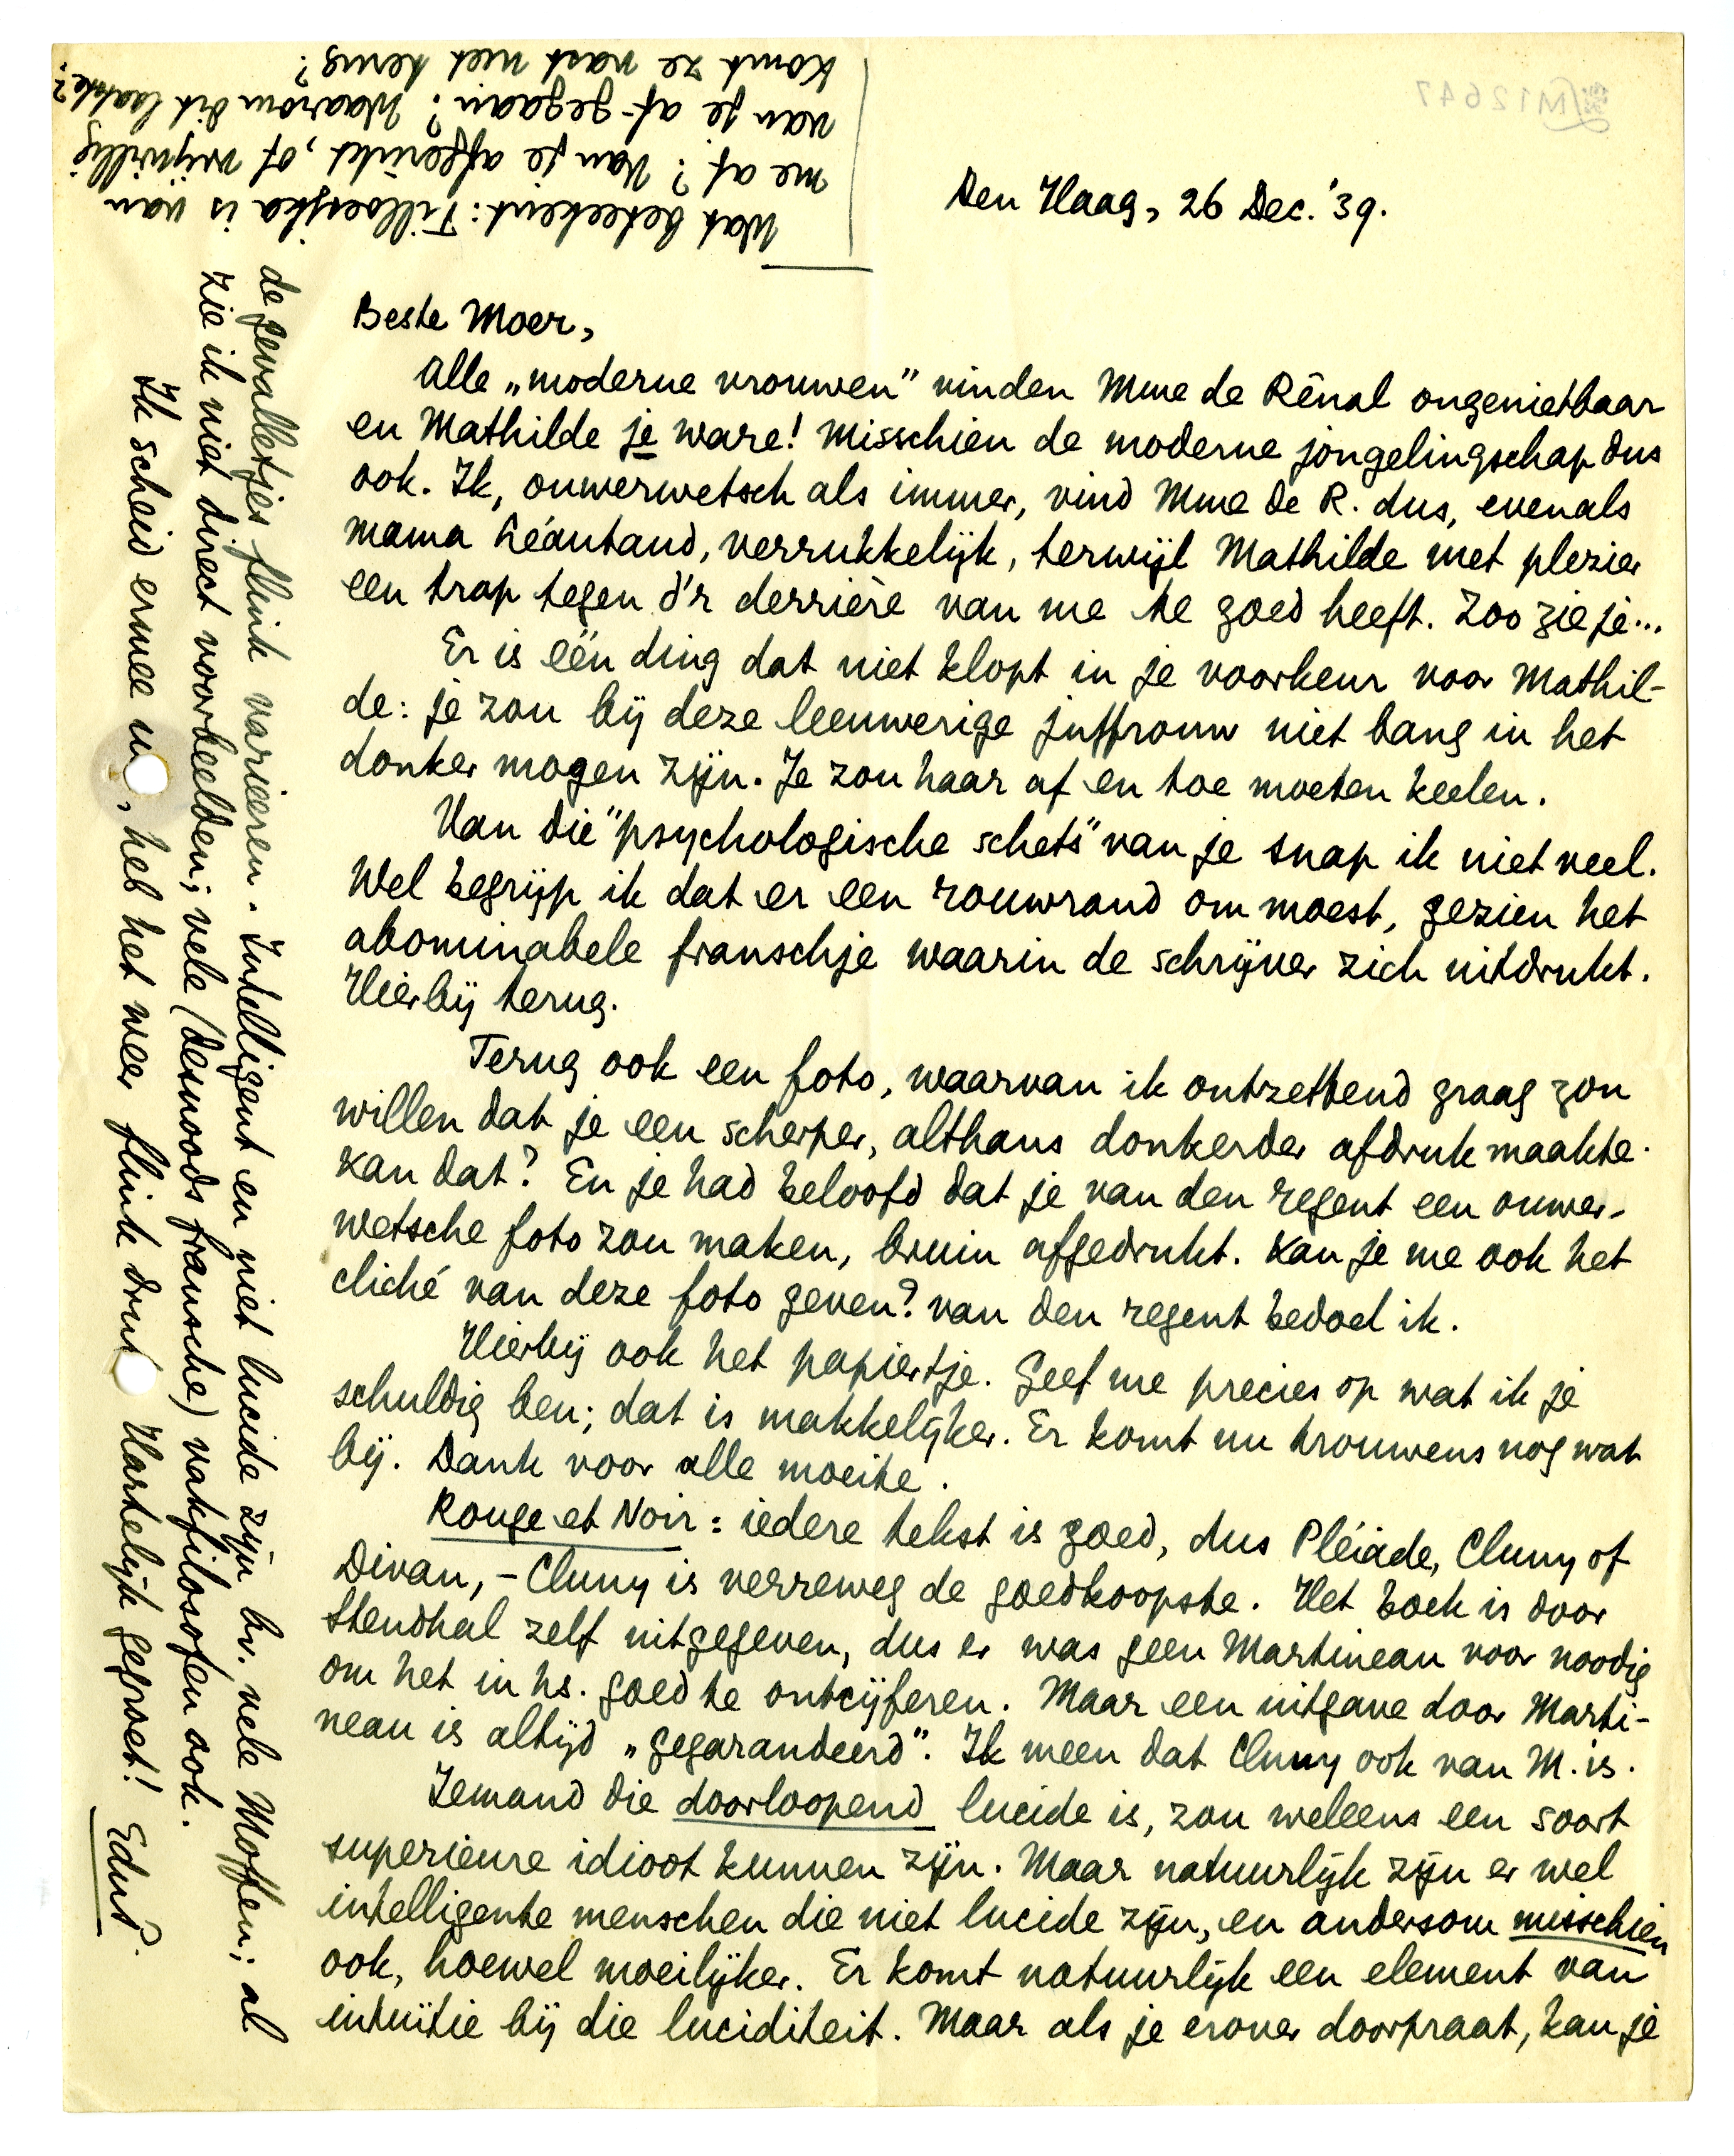 Den Haag, 26 Dec. '39.
Beste Moer,
Alle „moderne vrouwen” vinden Mme de Rênal ongenietbaar
en Mathilde je ware! Misschien de moderne jongelingschap dus
ook. Ik, ouwerwetsch als immer, vind Mme de R. dus, evenals
mama Léautaud, verrukkelijk, terwijl Mathilde met plezier
een trap tegen d'r derrière van me te goed heeft. Zoo zie je...
Er is één ding dat niet klopt in je voorkeur voor Mathil-
de: je zou bij deze leeuwerige juffrouw niet bang in het
donker mogen zijn. Je zou haar af en toe moeten keelen.
Van die "psychologische schets" van je snap ik niet veel.
Wel begrijp ik dat er een rouwrand om moest, gezien het
abominabele franschje waarin de schrijver zich uitdrukt.
Hierbij terug.
Terug ook een foto, waarvan ik ontzettend graag zou
willen dat je een scherper, althans donkerder afdruk maakte.
Kan dat? En je had beloofd dat je van den regent een ouwer-
wetsche foto zou maken, bruin afgedrukt. Kan je me ook het
cliché van deze foto geven? van den regent bedoel ik.
Hierbij ook het papiertje. Geef me precies op wat ik je
schuldig ben; dat is makkelijker. Er komt nu trouwens nog wat
bij. Dank voor alle moeite.
Rouge et Noir: iedere tekst is goed, dus Pléiade, Cluny of
Divan, - Cluny is verreweg de goedkoopste. Het boek is door
Stendhal zelf uitgegeven, dus er was geen Martineau voor noodig
om het in hs. goed te ontcijferen. Maar een uitgave door Marti-
neau is altijd „gegarandeerd”. Ik meen dat Cluny ook van M. is.
Iemand die doorloopend lucide is, zou weleens een soort
superieure idioot kunnen zijn. Maar natuurlijk zijn er wel
intelligente menschen die niet lucide zijn, en andersom misschien
ook, hoewel moeilijker. Er komt natuurlijk een element van
intuïtie bij die luciditeit. Maar als je erover doorpraat, kan je
de gevalletjes flink varieeren. Intelligent en niet lucide zijn bv. vele Moffen; al
zie ik niet direct voorbeelden; vele (desnoods fransche) vakfilosofen ook.
Ik scheid ermee u, heb het weer flink dru Hartelijk gegroet! EduP.
Wat beteekent: Tilloeijka is van
me af? Van je afgerukt, of vrijwillig
van je af-gegaan? Waarom dit laatste?
Komt ze vast niet terug?
M12647